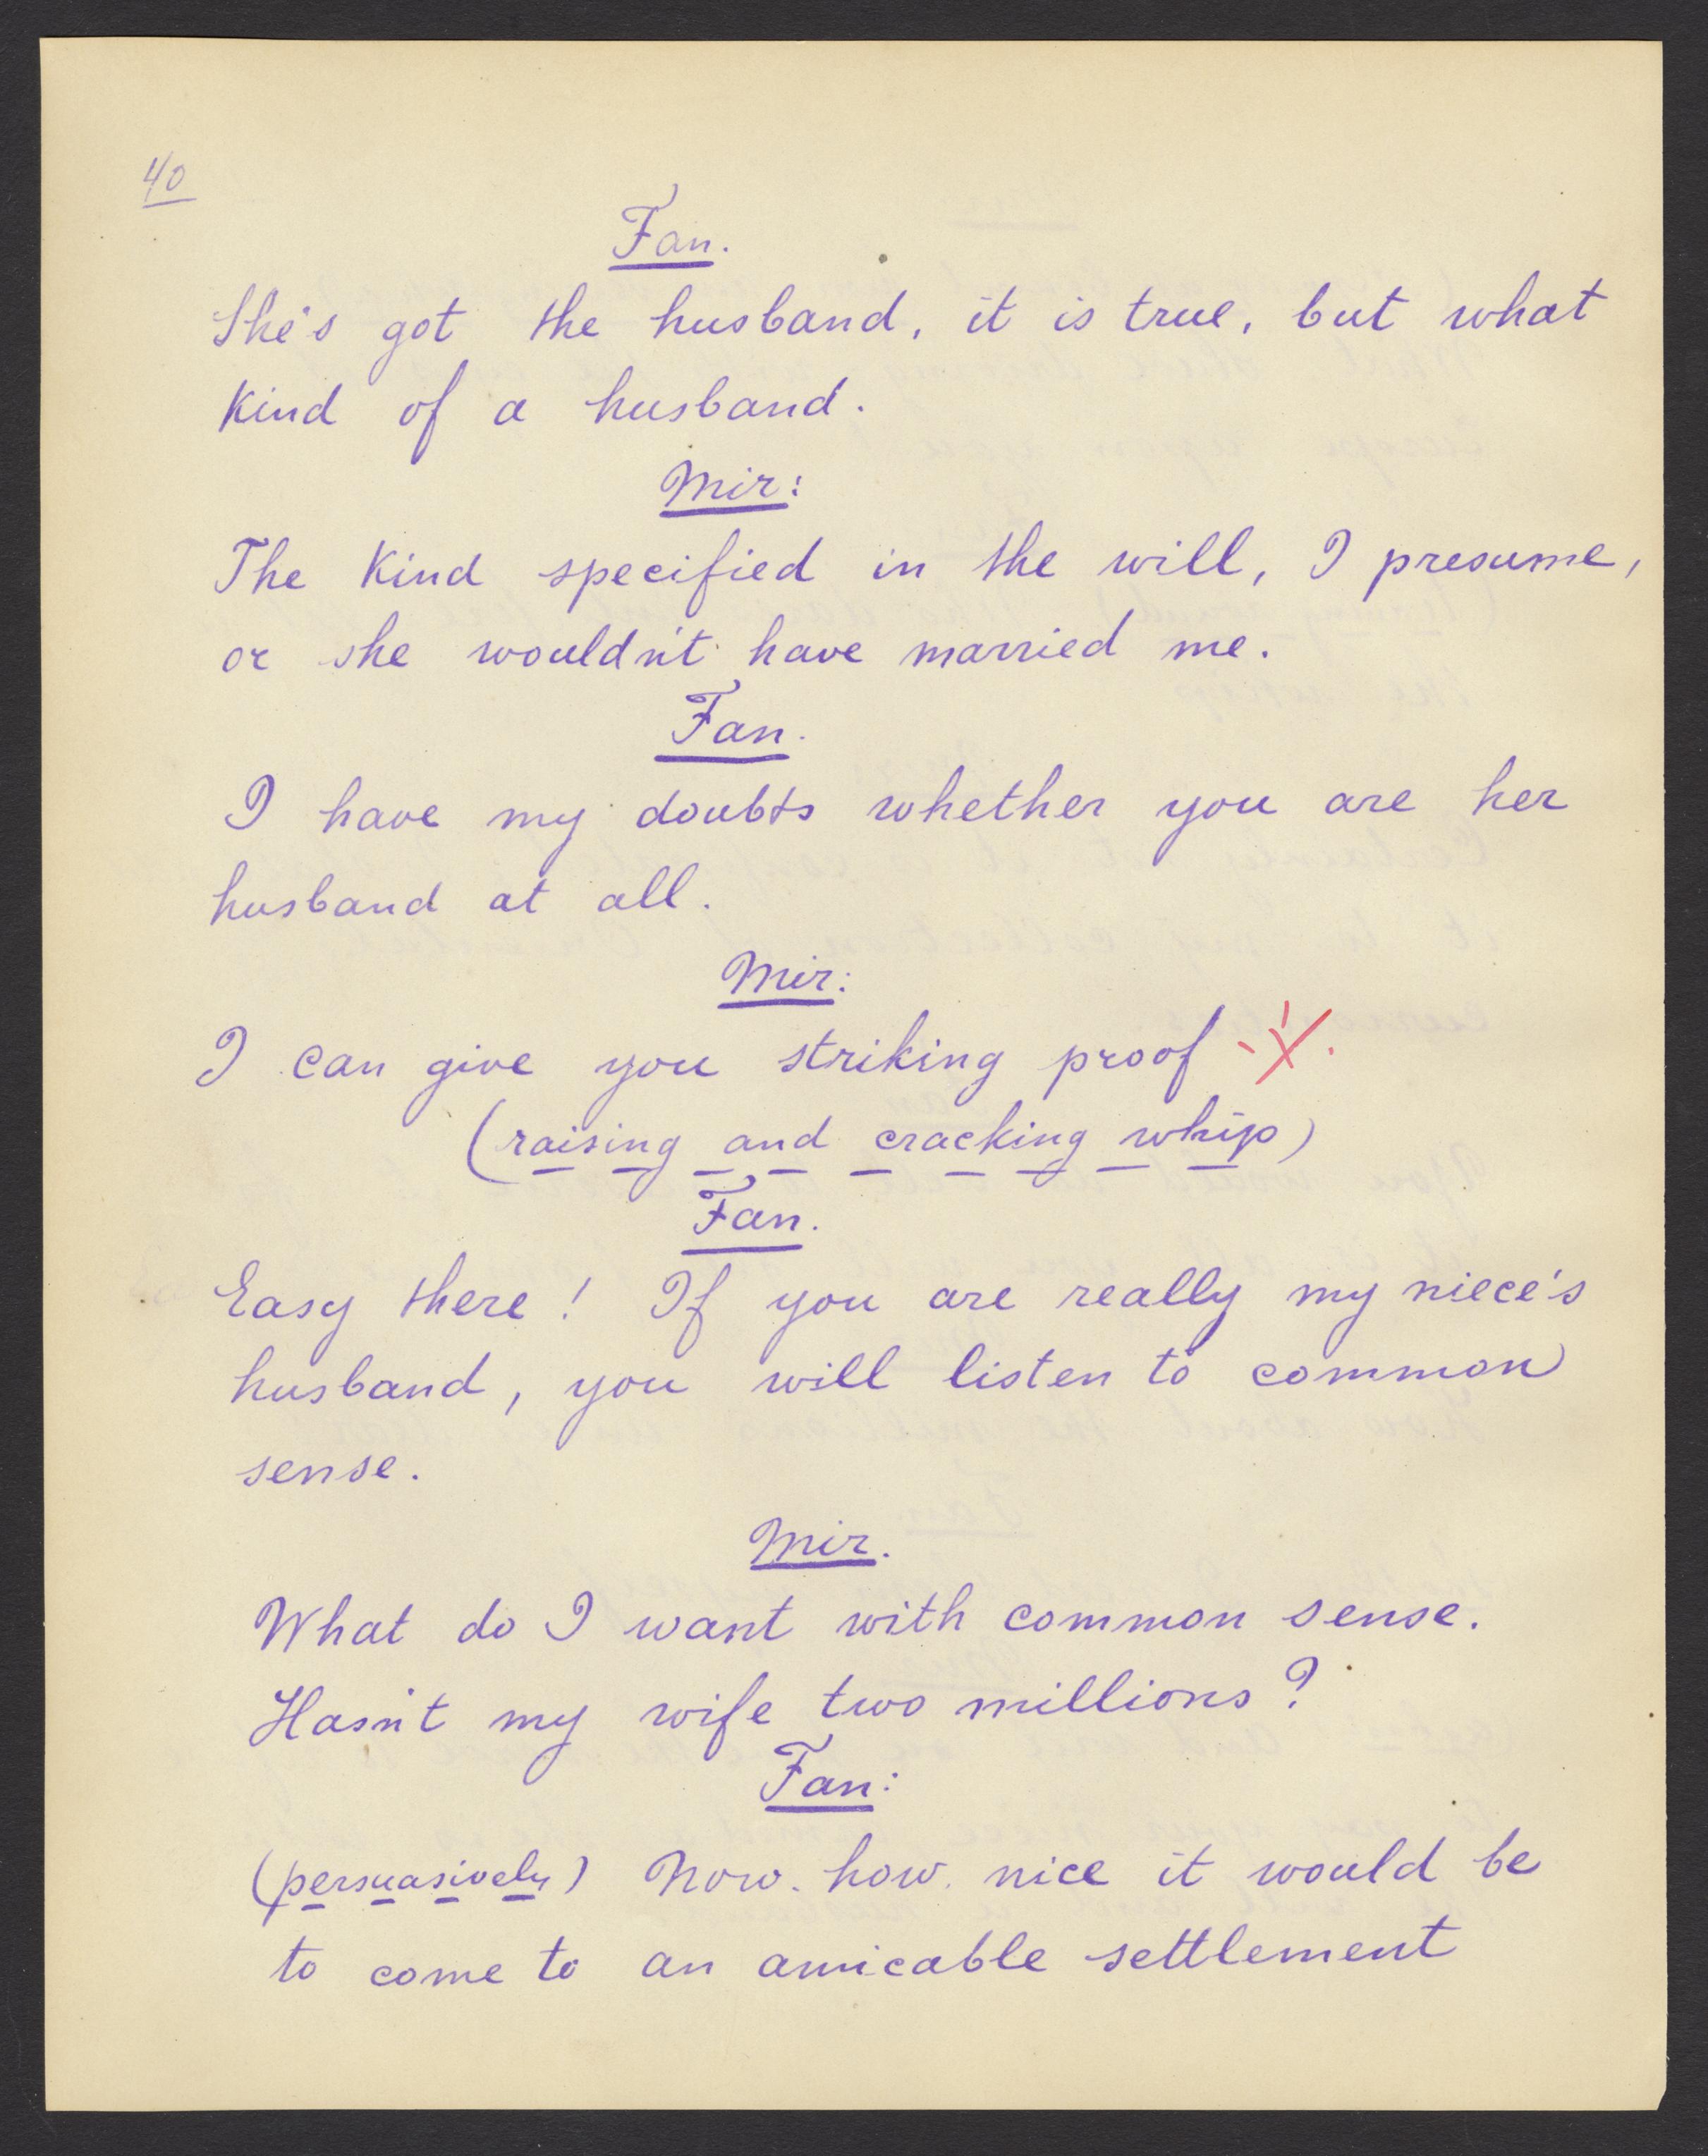 40
Fan.
She's got the husband, it is true, but what
kind of a husband.
Mir:
The kind specified in the will, I presume,
or she wouldn't have married me.
Fan.
I have my doubts whether you are her
husband at all.
Mir:
I can give you striking proof
(raising and cracking whip)
Fan.
Easy there! If you are really my niece's
husband, you will listen to common
sense.
Mir.
What do I want with common sense.
Hasn't my wife two millions?
Fan:
(persuasively) Now. how. nice it would be
to come to an amicable settlement